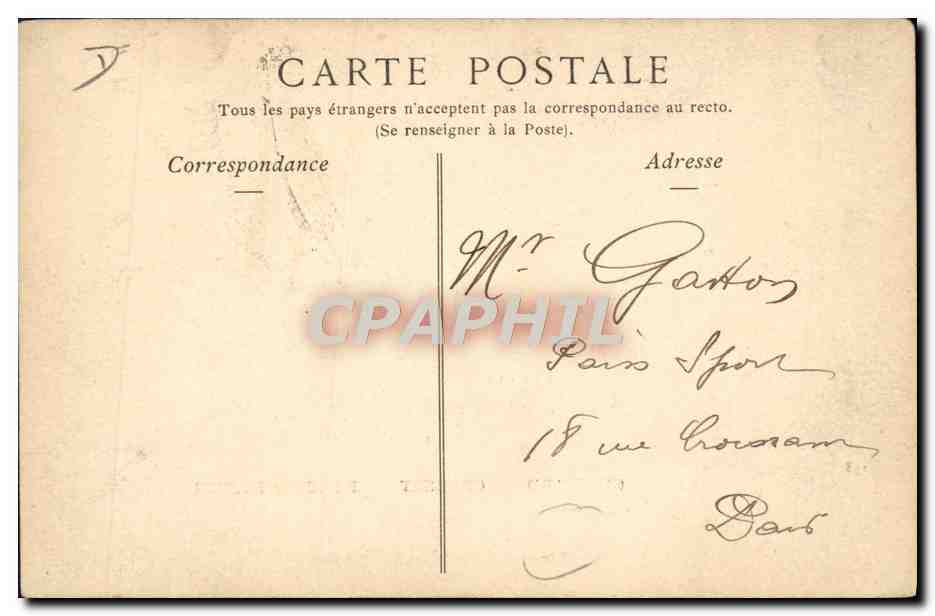 CARTE POSTALE
Tous les pays étrangers n'acceptent pas la correspondance au recto.
(Se renseigner à la Poste).
Correspondance
Adresse
Mr Gaston
CPAPHIL
Paris Sport
18 rue Croissant
Paris